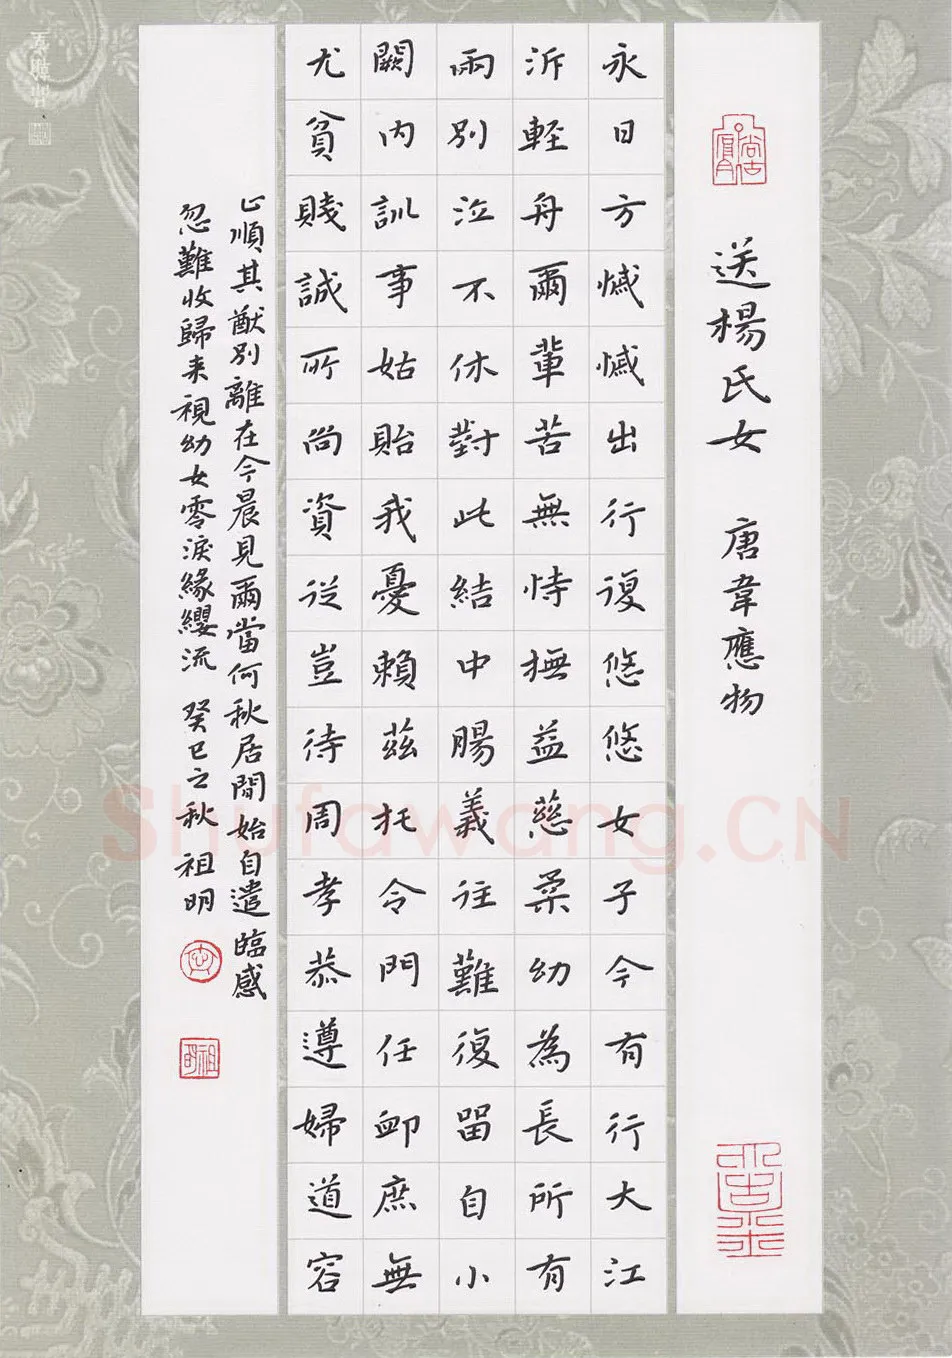 送楊氏女 唐韋應物
永日方慽慽出行復悠悠女子今有行大江
泝輕舟爾輩苦無恃撫益慈柔幼為長所有
兩別泣不休對此結中腸義往難復留自小
闕內訓事姑貽我憂賴茲托令門任卹庶無
尤貧賤誠所尚資從豈待周孝恭遵婦道容
止順其猷別離在今晨見爾當何秋居閒始自遣臨感
忽難收歸来視幼女零淚緣纓流 癸巳之秋 祖明
祖明
Shufawang.CN